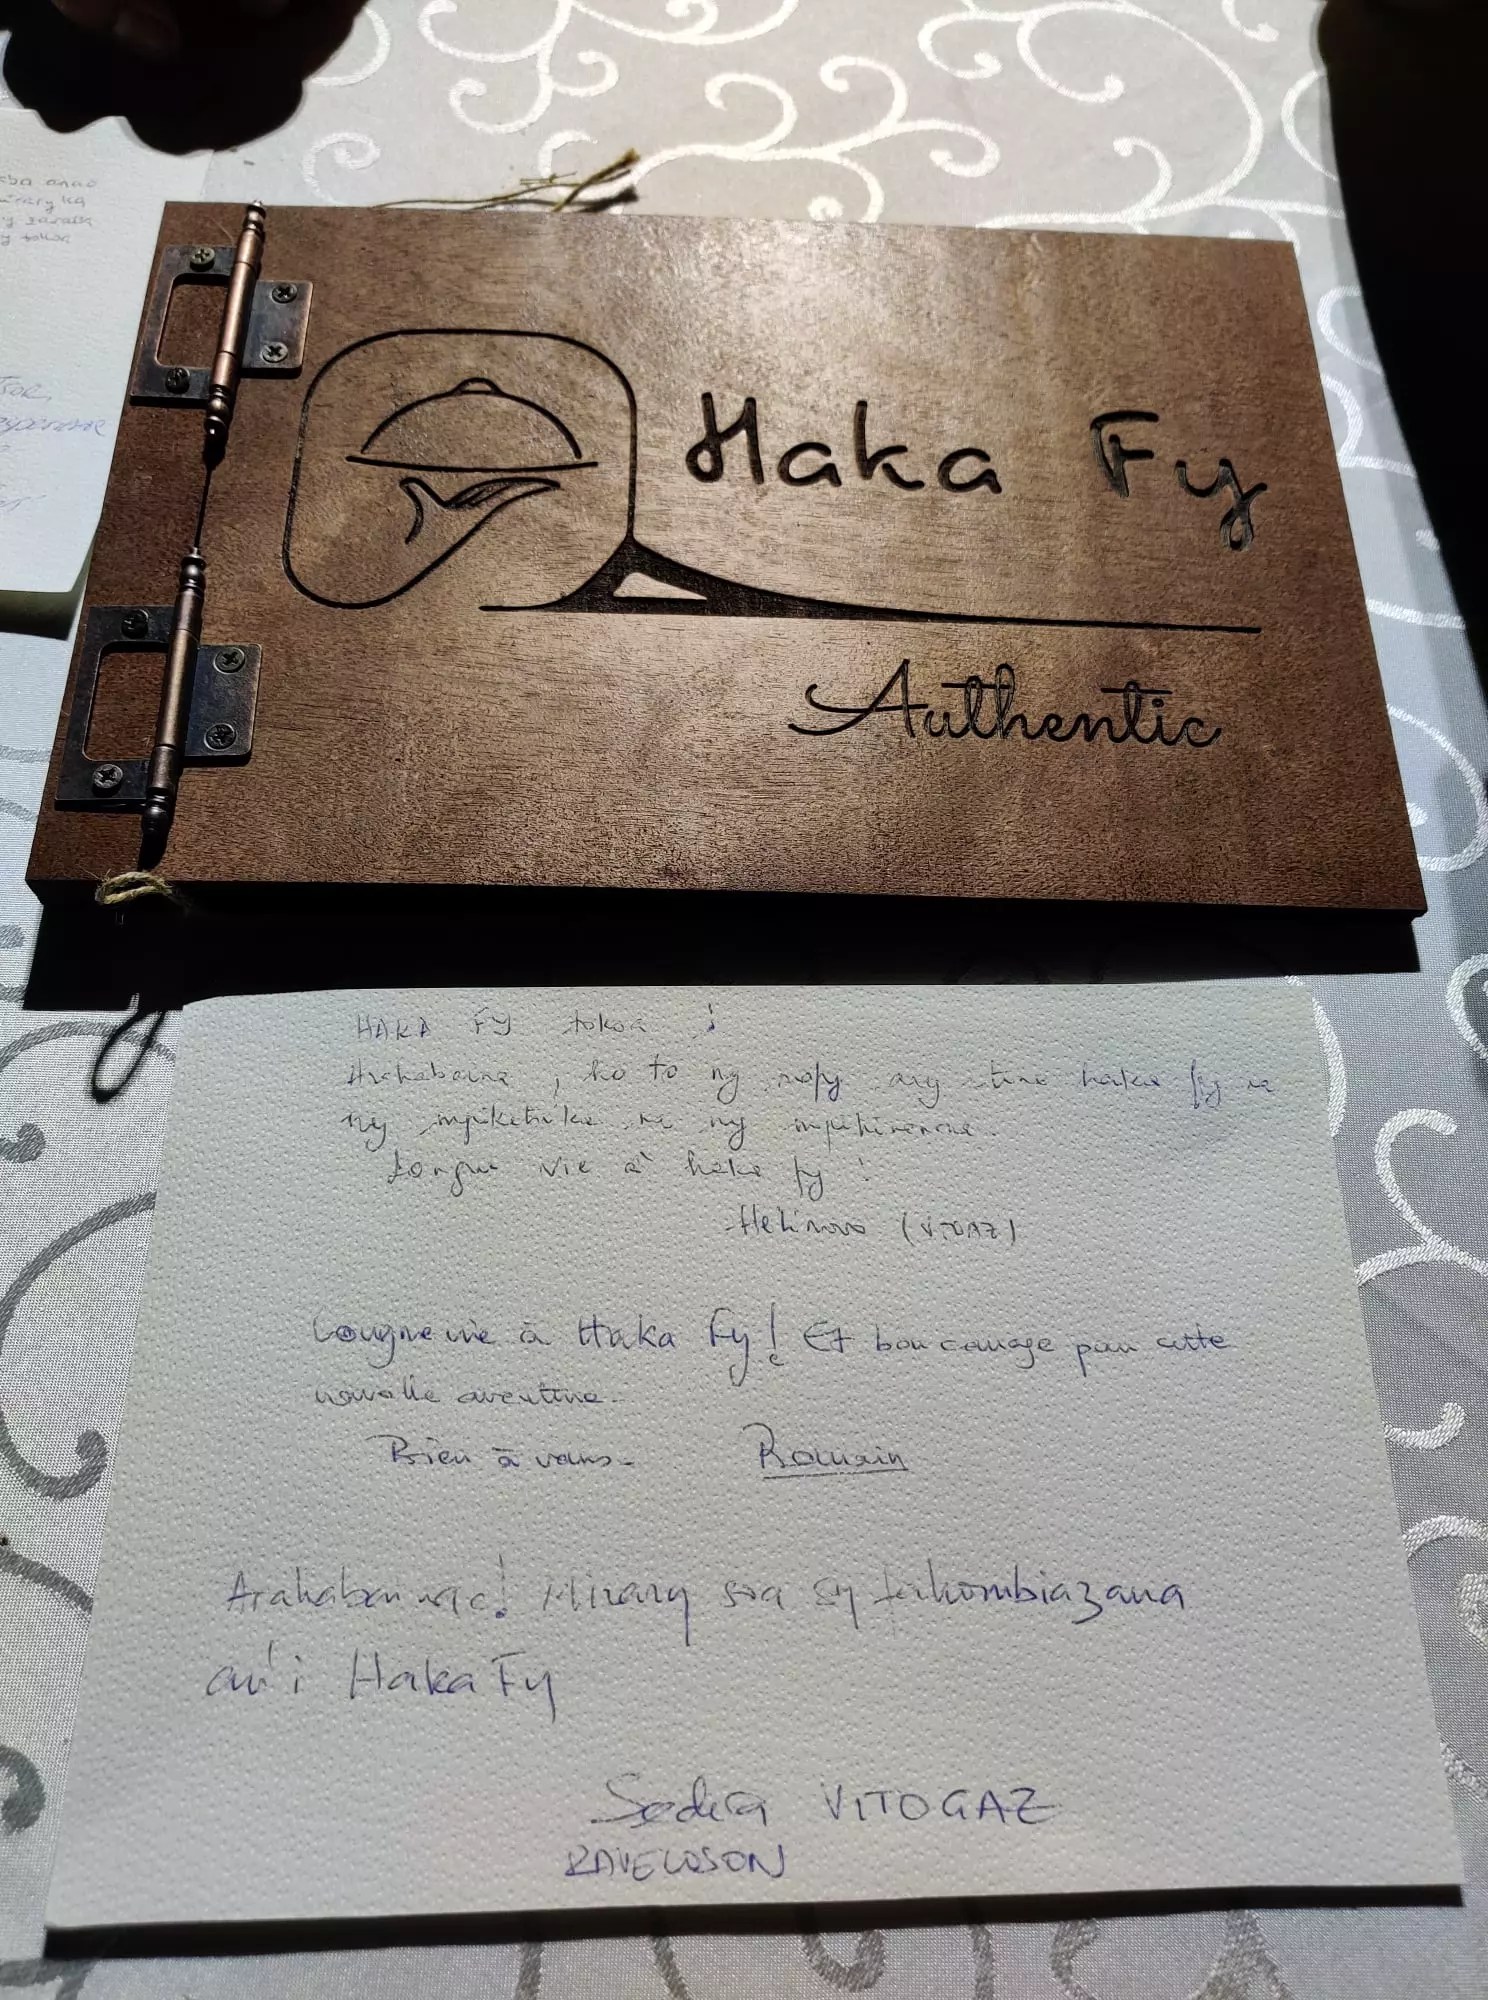 Haka Fy
Authentic
HAKA FY tokoa !
Arahabaina, ho to ny nofy ary tena haka fy na
ny mpiketrika na ny mpihinana.
Longue vie à haka fy !
(VITOGAZ)
Longue vie à Haka Fy ! Et bon courage pour cette
nouvelle aventure.
Bien à vous.
Romain
Arahabaina e! Mirary soa sy
an'i Haka Fy
Sedra VITOGAZ
RAVELOSON